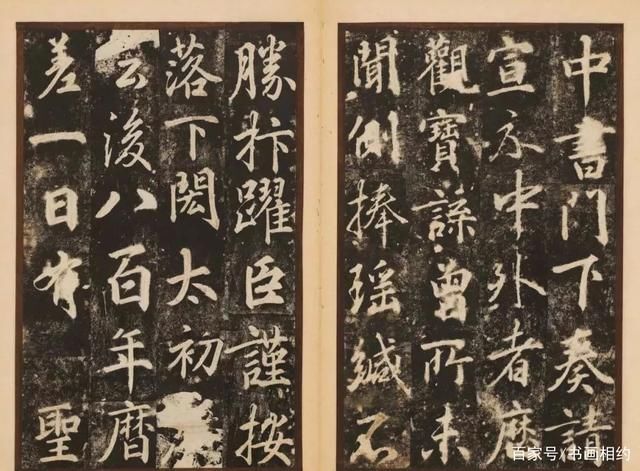 中書門下奏請
宣示中外者麻
觀寶諜曾所未
聞側捧瑤緘不
勝抃躍臣謹按
落下閎太初
云後八百年曆
差一日有聖
百家号/书画相约